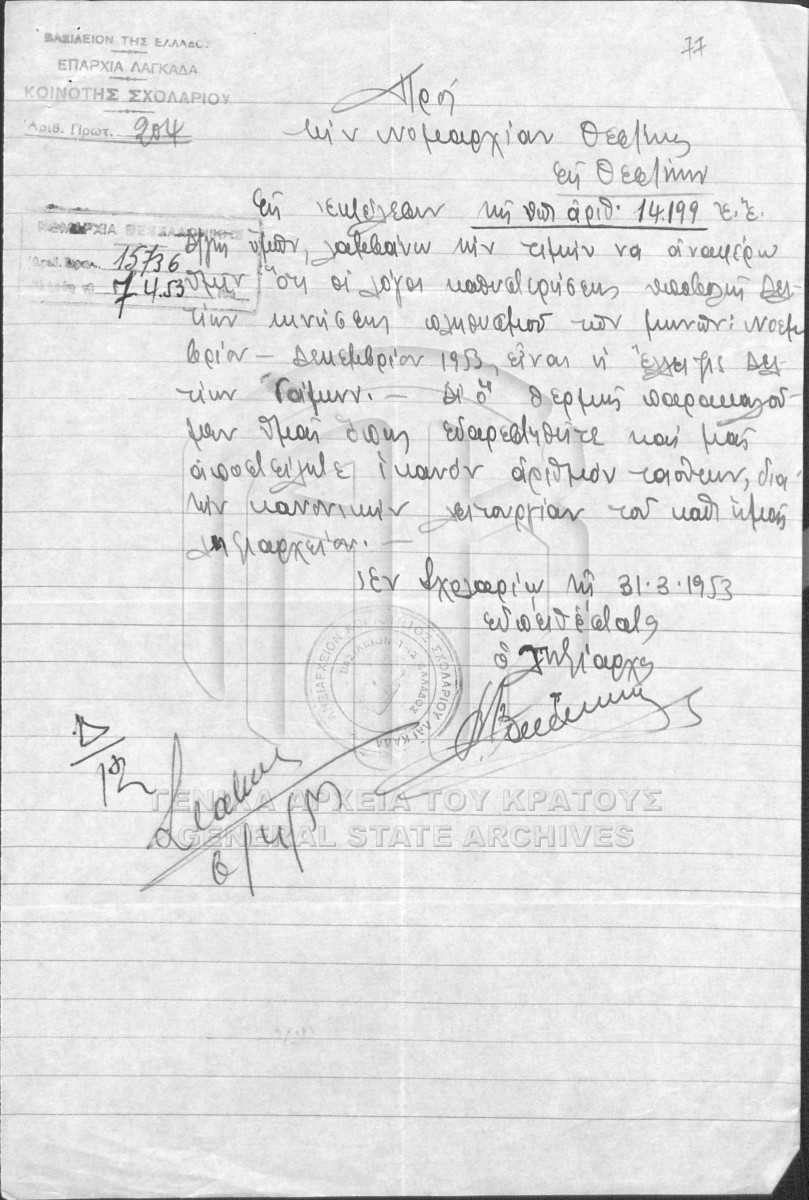 77
ΒΑΣΙΛΕΙΟΝ ΤΗΣ ΕΛΛΑΔΟΣ
ΕΠΑΡΧΙΑ ΛΑΓΚΑΔΑ
ΚΟΙΝΟΤΗΣ ΣΧΟΛΑΡΙΟΥ
Αριθ. Πρωτ. 204
Πρός
τὴν Νομαρχίαν Θεσ/νίκης
εἰς Θεσ/νίκην
ΝΟΜΑΡΧΙΑ ΘΕΣΣΑΛΟΝΙΚΗΣ
15736
7 4.53
Εἰς ἐκτέλεσιν τῆς ὑπ' ἀριθ. 14.199 ἐ. ἔ.
δ)γῆς ὑμῶν, λαμβάνω τὴν τιμὴν νὰ ἀναφέρω
ὑμῖν ὅτι οἱ λόγοι καθυστερήσεως ὑποβολῆς Δελ-
τίων κινήσεως πληθυσμοῦ τῶν μηνῶν: Νοεμ-
βρίου - Δεκεμβρίου 1953, εἶναι ἡ ἔλλειψις Δελ-
τίων Γάμων. - Δι' ὃ θερμῶς παρακαλοῦ-
μεν ὑμᾶς ὅπως εὐαρεστηθῆτε καὶ μᾶς
ἀποστείλητε ἱκανὸν ἀριθμὸν τοιούτων, διὰ
τὴν κανονικὴν λειτουργίαν τοῦ καθ' ἡμᾶς
Ληξιαρχείου. -
Ἐν Σχολαρίῳ τῇ 31-3-1953
εὐπειθέστατος
ὁ Ληξίαρχος
ΛΗΞΙΑΡΧΕΙΟΝ ΚΟΙΝΟΤΗΤΟΣ ΣΧΟΛΑΡΙΟΥ ΛΑΓΚΑΔΑ
ΒΑΣΙΛΕΙΟΝ ΤΗΣ ΕΛΛΑΔΟΣ
Δ/12
8/4/53
ΓΕΝΙΚΑ ΑΡΧΕΙΑ ΤΟΥ ΚΡΑΤΟΥΣ
GENERAL STATE ARCHIVES